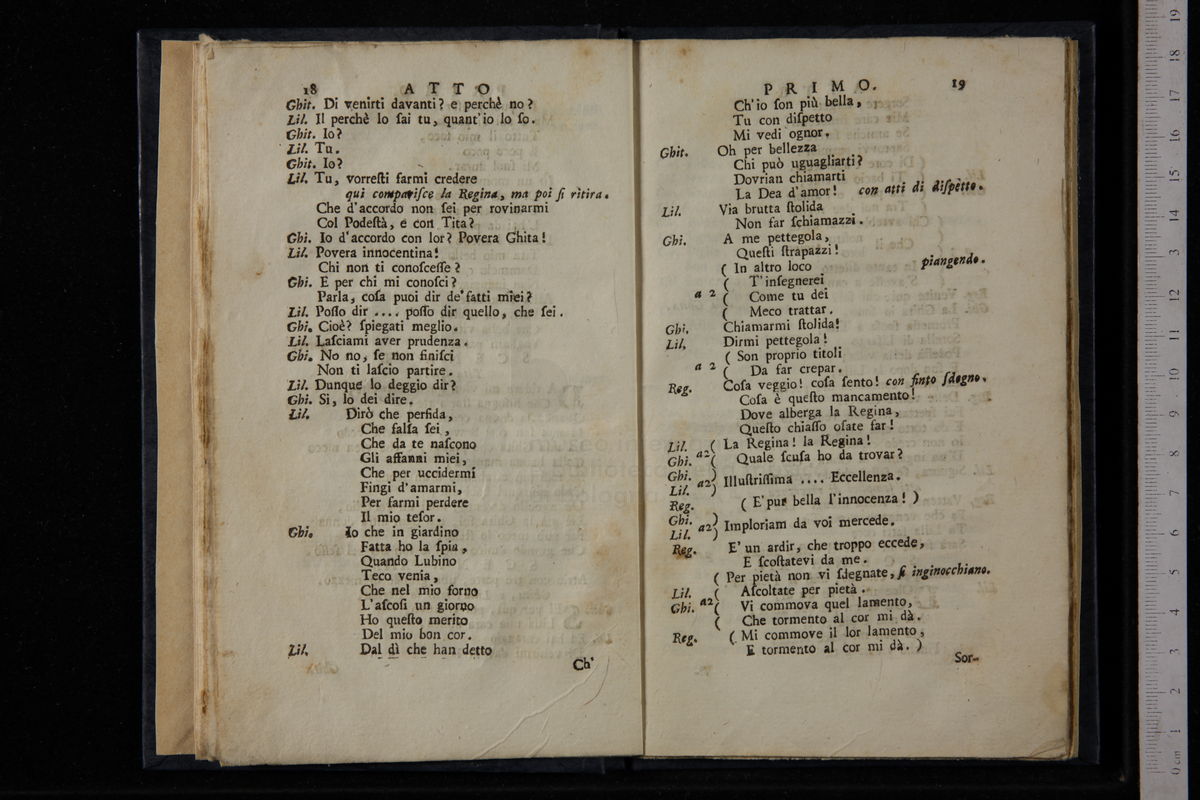 18 ATTO
Ghit. Di venirti davanti? e perchè no?
Lil. Il perchè lo sai tu, quant'io lo so.
Ghit. Io?
Lil. Tu.
Ghit. Io?
Lil. Tu, vorreſti farmi credere
qui compariſce la Regina, ma poi ſi ritira.
Che d'accordo non ſei per rovinarmi
Col Podeſtà, e con Tita?
Ghi. Io d'accordo con lor? Povera Ghita!
Lil. Povera innocentina!
Chi non ti conoſceſſe?
Ghi. E per chi mi conoſci?
Parla, coſa puoi dir de'fatti miei?
Lil. Poſſo dir .... poſſo dir quello, che ſei.
Ghi. Cioè? ſpiegati meglio.
Lil. Laſciami aver prudenza.
Ghi. No no, ſe non finiſci
Non ti laſcio partire.
Lil. Dunque lo deggio dir?
Ghi. Si, lo dei dire.
Lil. Dirò che perfida,
Che falſa ſei,
Che da te naſcono
Gli affanni miei,
Che per uccidermi
Fingi d'amarmi,
Per farmi perdere
Il mio teſor.
Ghi. Io che in giardino
Fatta ho la ſpia,
Quando Lubino
Teco venia,
Che nel mio forno
L'aſcoſi un giorno
Ho queſto merito
Del mio bon cor.
Lil. Dal dì che han detto
Ch'
PRIMO. 19
Ch'io ſon più bella,
Tu con diſpetto
Mi vedi ognor.
Ghit. Oh per bellezza
Chi può uguagliarti?
Dovrian chiamarti
La Dea d'amor! con atti di diſpetto.
Lil. Via brutta ſtolida
Non far ſchiamazzi.
Ghi. A me pettegola,
Queſti ſtrapazzi!
( In altro loco piangendo.
( T'inſegnerei
a 2 ( Come tu dei
( Meco trattar.
Ghi. Chiamarmi ſtolida!
Lil. Dirmi pettegola!
( Son proprio titoli
a 2 ( Da far crepar.
Reg. Coſa veggio! coſa ſento! con finto ſdegno.
Coſa è queſto mancamento!
Dove alberga la Regina,
Queſto chiaſſo oſate far!
Lil. ( La Regina! la Regina!
Ghi. a2 ( Quale ſcuſa ho da trovar?
Ghi.
Lil. a2) Illuſtriſſima .... Eccellenza.
Reg. ( E'pur bella l'innocenza! )
Ghi.
Lil. a2) Imploriam da voi mercede.
Reg. E' un ardir, che troppo eccede,
E ſcoſtatevi da me.
( Per pietà non vi ſdegnate, ſi inginocchiano.
Lil. ( Aſcoltate per pietà.
Ghi. a2( Vi commova quel lamento,
( Che tormento al cor mi dà.
Reg. ( Mi commove il lor lamento,
E tormento al cor mi dà. )
Sor-